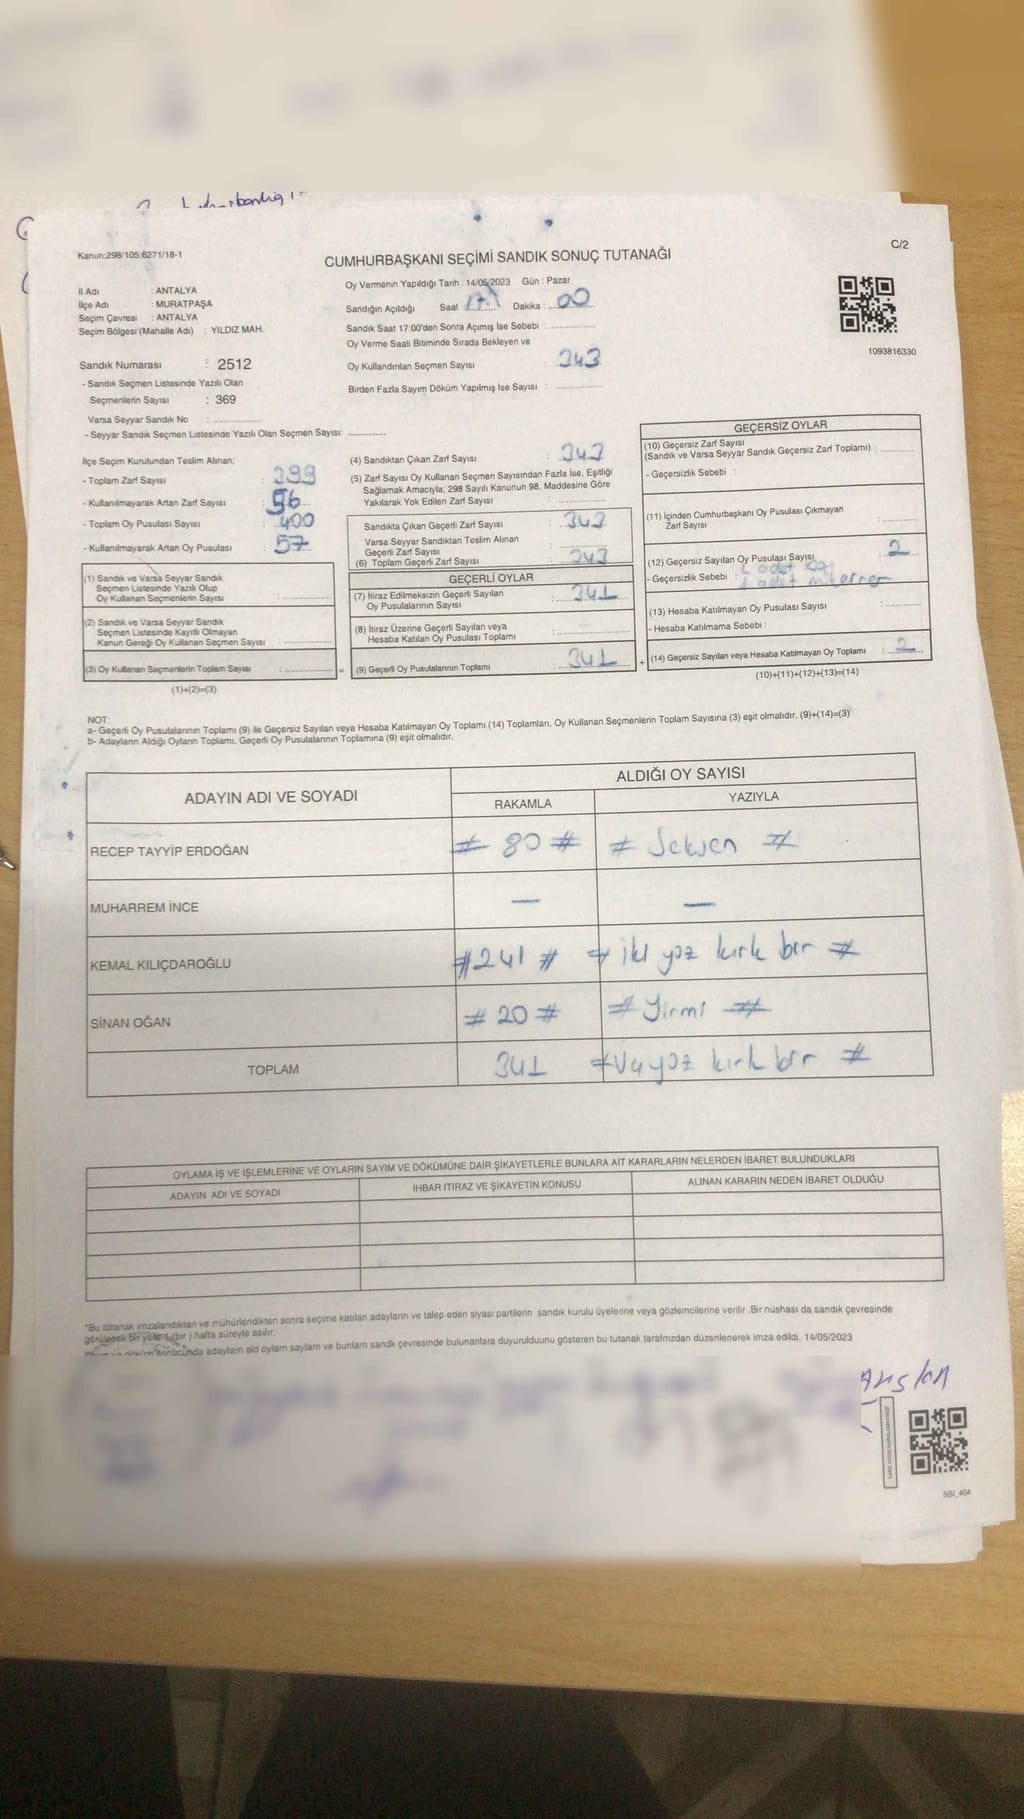 Kanun:298/105;6271/18-1
C/2
CUMHURBAŞKANI SEÇİMİ SANDIK SONUÇ TUTANAĞI
İl Adı : ANTALYA
İlçe Adı : MURATPAŞA
Seçim Çevresi : ANTALYA
Seçim Bölgesi (Mahalle Adı) : YILDIZ MAH.
Oy Vermenin Yapıldığı Tarih : 14/05/2023 Gün : Pazar
Sandığın Açıldığı Saat 17 Dakika : 00
Sandık Saat 17:00'den Sonra Açımış İse Sebebi :
Oy Verme Saati Bitiminde Sırada Bekleyen ve
Oy Kullandırılan Seçmen Sayısı : 343
Birden Fazla Sayım Döküm Yapılmış İse Sayısı :
1093816330
Sandık Numarası : 2512
- Sandık Seçmen Listesinde Yazılı Olan
Seçmenlerin Sayısı : 369
Varsa Seyyar Sandık No :
- Seyyar Sandık Seçmen Listesinde Yazılı Olan Seçmen Sayısı:
İlçe Seçim Kurulundan Teslim Alınan:
- Toplam Zarf Sayısı : 399
- Kullanılmayarak Artan Zarf Sayısı : 56
- Toplam Oy Pusulası Sayısı : 400
- Kullanılmayarak Artan Oy Pusulası : 57
(1) Sandık ve Varsa Seyyar Sandık
Seçmen Listesinde Yazılı Olup
Oy Kullanan Seçmenlerin Sayısı :
(2) Sandık ve Varsa Seyyar Sandık
Seçmen Listesinde Kayıtlı Olmayan
Kanun Gereği Oy Kullanan Seçmen Sayısı :
(3) Oy Kullanan Seçmenlerin Toplam Sayısı :
(1)+(2)=(3)
(4) Sandıktan Çıkan Zarf Sayısı : 343
(5) Zarf Sayısı Oy Kullanan Seçmen Sayısından Fazla İse, Eşitliği
Sağlamak Amacıyla; 298 Sayılı Kanunun 98. Maddesine Göre
Yakılarak Yok Edilen Zarf Sayısı :
Sandıkta Çıkan Geçerli Zarf Sayısı : 343
Varsa Seyyar Sandıktan Teslim Alınan
Geçerli Zarf Sayısı :
(6) Toplam Geçerli Zarf Sayısı : 343
GEÇERLİ OYLAR
(7) İtiraz Edilmeksizin Geçerli Sayılan
Oy Pusulalarının Sayısı : 341
(8) İtiraz Üzerine Geçerli Sayılan veya
Hesaba Katılan Oy Pusulası Toplamı :
= (9) Geçerli Oy Pusulalarının Toplamı : 341 +
GEÇERSİZ OYLAR
(10) Geçersiz Zarf Sayısı
(Sandık ve Varsa Seyyar Sandık Geçersiz Zarf Toplamı) :
- Geçersizlik Sebebi :
(11) İçinden Cumhurbaşkanı Oy Pusulası Çıkmayan
Zarf Sayısı :
(12) Geçersiz Sayılan Oy Pusulası Sayısı : 2
- Geçersizlik Sebebi : 1 adet
1 adet
(13) Hesaba Katılmayan Oy Pusulası Sayısı :
- Hesaba Katılmama Sebebi :
(14) Geçersiz Sayılan veya Hesaba Katılmayan Oy Toplamı : 2
(10)+(11)+(12)+(13)=(14)
NOT:
a- Geçerli Oy Pusulalarının Toplamı (9) ile Geçersiz Sayılan veya Hesaba Katılmayan Oy Toplamı (14) Toplamları, Oy Kullanan Seçmenlerin Toplam Sayısına (3) eşit olmalıdır. (9)+(14)=(3)
b- Adayların Aldığı Oyların Toplamı, Geçerli Oy Pusulalarının Toplamına (9) eşit olmalıdır.
ADAYIN ADI VE SOYADI
ALDIĞI OY SAYISI
RAKAMLA YAZIYLA
RECEP TAYYİP ERDOĞAN # 80 # # Seksen #
MUHARREM İNCE — —
KEMAL KILIÇDAROĞLU # 241 # # iki yüz kırk bir #
SİNAN OĞAN # 20 # # Yirmi #
TOPLAM 341 yüz kırk bir #
OYLAMA İŞ VE İŞLEMLERİNE VE OYLARIN SAYIM VE DÖKÜMÜNE DAİR ŞİKAYETLERLE BUNLARA AİT KARARLARIN NELERDEN İBARET BULUNDUKLARI
ADAYIN ADI VE SOYADI İHBAR İTİRAZ VE ŞİKAYETİN KONUSU ALINAN KARARIN NEDEN İBARET OLDUĞU
*Bu tutanak imzalandıktan ve mühürlendikten sonra seçime katılan adayların ve talep eden siyasi partilerin sandık kurulu üyelerine veya gözlemcilerine verilir .Bir nüshası da sandık çevresinde
görülecek bir yere 1 (bir ) hafta süreyle asılır.
adaylarn ald oylarn saylarn ve bunlarn sandk çevresinde bulunanlara duyurulduunu gösteren bu tutanak tarafmzdan düzenlenerek imza edildi. 14/05/2023
Arslan
SSI_404